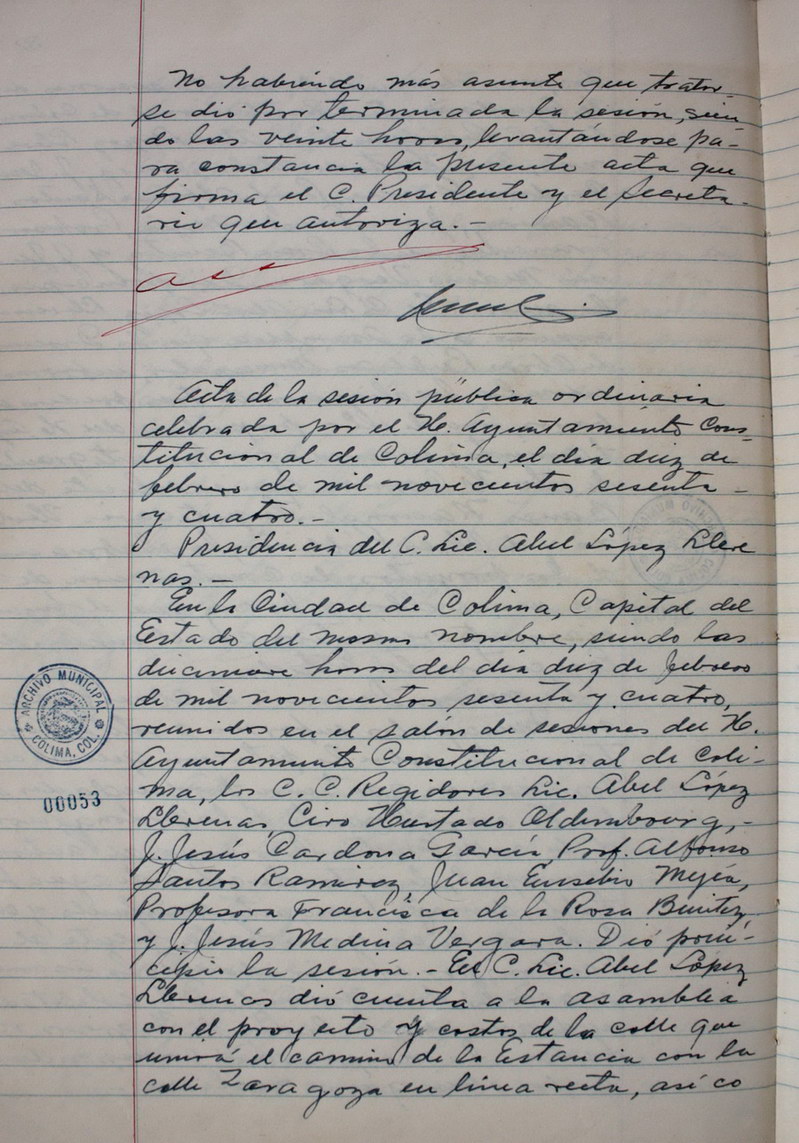 No habiendo más asunto que tratar-
se dió por terminada la sesión, sien
do las veinte horas, levantándose pa-
ra constancia la presente acta que
firma el C. Presidente y el Secreta-
rio que autoriza.-
Acta de la sesión pública ordinaria
celebrada por el H. Ayuntamiento Cons-
titucional de Colima, el día diez de
febrero de mil novecientos sesenta -
y cuatro.-
Presidencia del C. Lic. Abel López Llere
nas.-
En la Ciudad de Colima, Capital del
Estado del mismo nombre, siendo las
diecinueve horas del día diez de febrero
de mil novecientos sesenta y cuatro,
reunidos en el salón de sesiones del H.
Ayuntamiento Constitucional de Coli-
ma, los C. C. Regidores Lic. Abel López
Llerenas, Ciro Hurtado Oldembourg,-
J. Jesús Cardona García, Prof. Alfonso
Santos Ramírez, Juan Eusebio Mejía,
Profesora Francisca de la Rosa Benítez,
y J. Jesús Medina Vergara. Dió prin-
cipio la sesión.- El C. Lic. Abel López
Llerenas dió cuenta a la asamblea
con el proyecto y costos de la calle que
unirá el camino de la Estancia con la
calle Zaragoza en línea recta, así co
ARCHIVO MUNICIPAL
COLIMA, COL.
00053